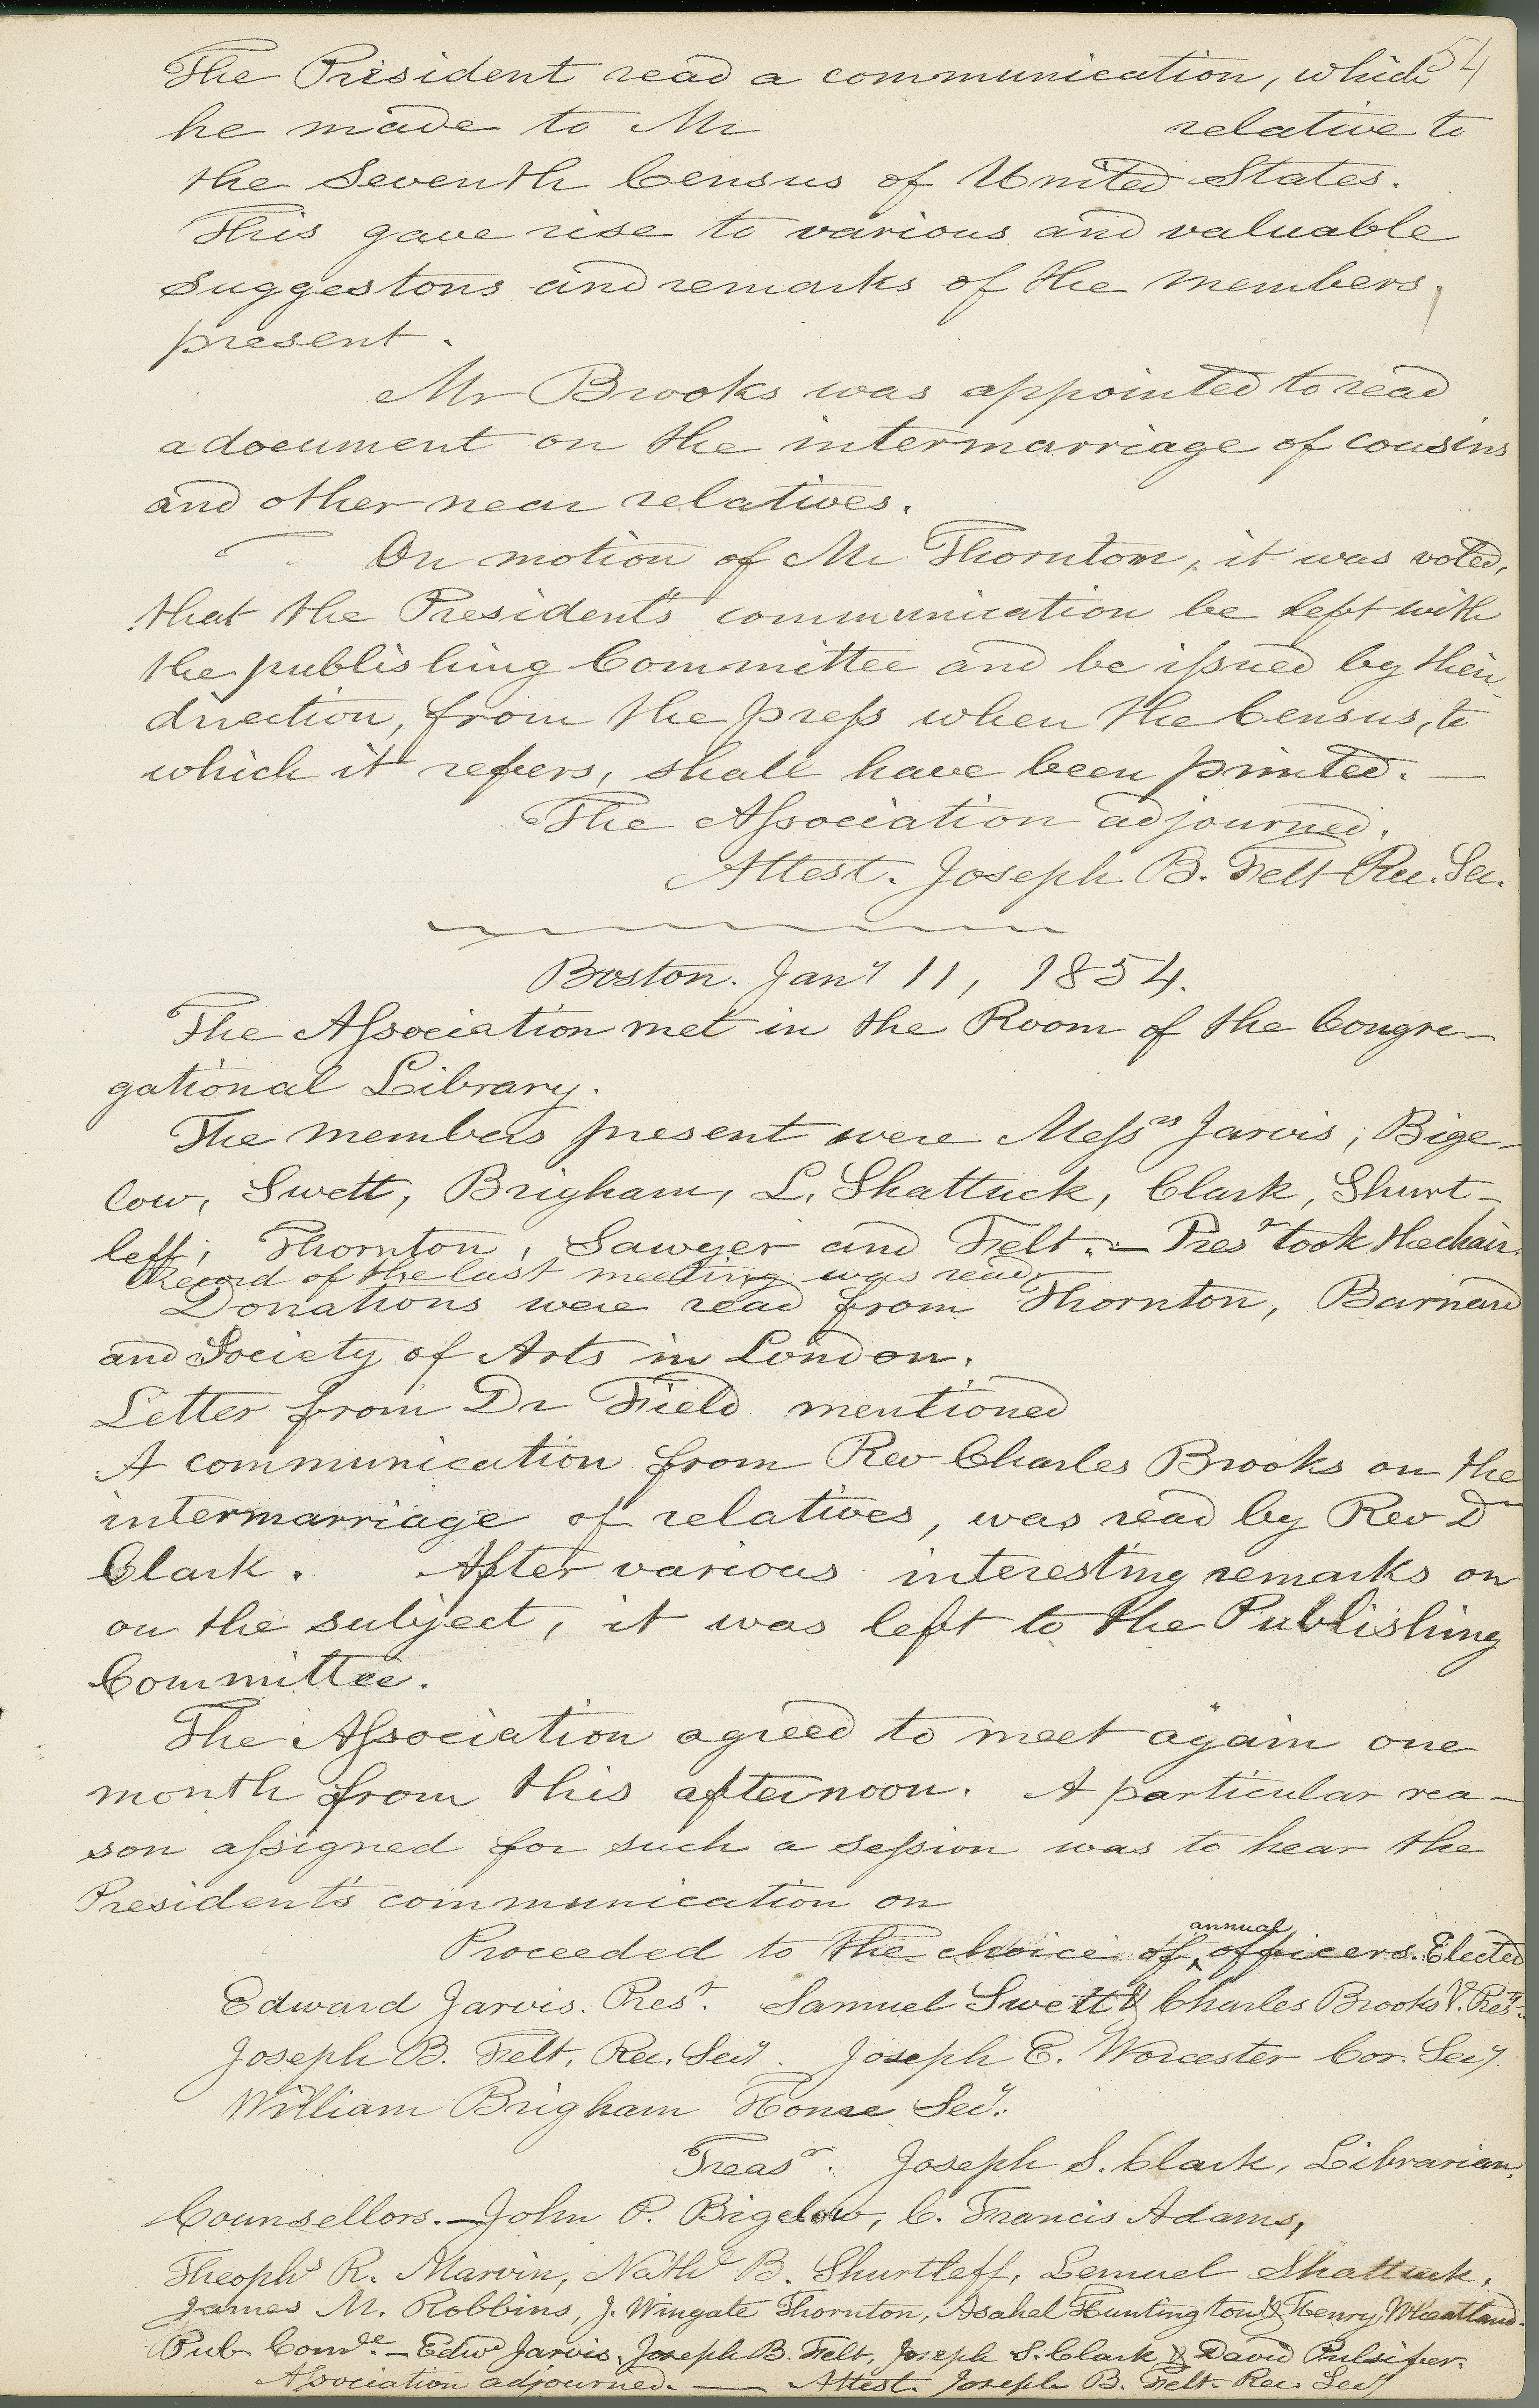 54
The President read a communication, which
he made to Mr relative to
the Seventh Census of United States.
This gave rise to various and valuable
suggestons and remarks of the members
present.
Mr Brooks was appointed to read
a document on the intermarriage of cousins
and other near relatives.
On motion of Mr Thornton, it was voted,
that the President's communication be left with
the publishing Committee and be issued by their
direction, from the press when the Census, to
which it refers, shall have been printed. —
The Association adjourned.
Attest. Joseph B. Felt Rec. Sec.
Boston. Jany 11, 1854.
The Association met in the Room of the Congre-
gational Library.
The members present were Messrs Jarvis, Bige-
low, Swett, Brigham, L. Shattuck, Clark, Shurt-
leff, Thornton, Sawyer and Felt. — Prest took the chair.
Record of the last meeting was read.
Donations were read from Thornton, Barnard
and Society of Arts in London.
Letter from Dr Field mentioned
A communication from Rev Charles Brooks on the
intermarriage of relatives, was read by Rev Dr
Clark. After various interesting remarks on
on the subject, it was left to the Publishing
Committee.
The Association agreed to meet again one
month from this afternoon. A particular rea-
son assigned for such a session was to hear the
President's communication on
Proceeded to the choice of annual officers. Elected
Edward Jarvis. Prest. Samuel Swett & Charles Brooks V. Prests.
Joseph B. Felt, Rec. Secy. Joseph E. Worcester Cor. Secy.
William Brigham Home Secy.
Treasr. Joseph S. Clark, Librarian,
Counsellors. — John P. Bigelow, C. Francis Adams,
Theophs R. Marvin, Nathl B. Shurtleff, Lemuel Shattuck,
James M. Robbins, J. Wingate Thornton, Asahel Huntington & Henry Wheatland.
Pub. Come. — Edwd Jarvis, Joseph B. Felt, Joseph S. Clark & David Pulsifer.
Association adjourned. — Attest. Joseph B. Felt. Rec. Secy